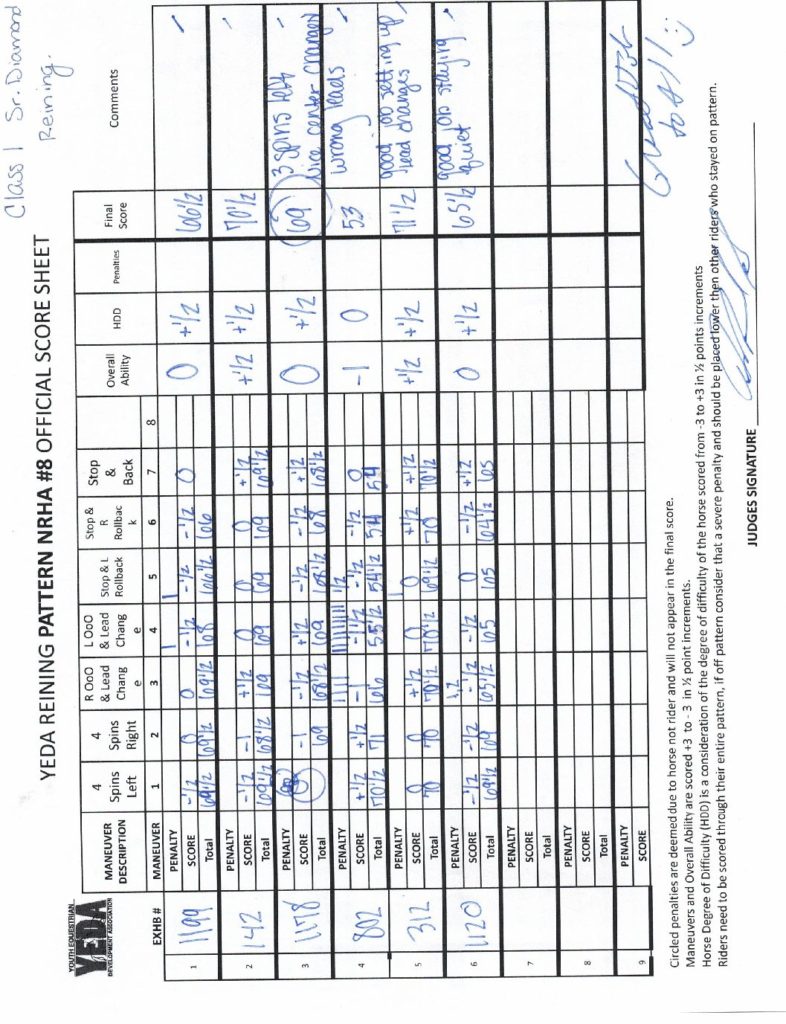 Class 1 Sr. Diamond
Reining.
YOUTH EQUESTRIAN
YEDA
DEVELOPMENT ASSOCIATION
YEDA REINING PATTERN NRHA #8 OFFICIAL SCORE SHEET
MANEUVER DESCRIPTION 4 Spins Left 4 Spins Right R OoO & Lead Chang e L OoO & Lead Chang e Stop & L Rollback Stop & R Rollbac k Stop & Back Overall Ability HDD Penalties Final Score Comments
EXHB # MANEUVER 1 2 3 4 5 6 7 8
1 1199 PENALTY 1 1
SCORE -1/2 0 0 -1/2 -1/2 -1/2 0 0 +1/2 66 1/2 ✓
Total 69 1/2 69 1/2 69 1/2 68 66 1/2 66
2 142 PENALTY
SCORE -1/2 -1 +1/2 0 0 0 +1/2 +1/2 +1/2 70 1/2 ✓
Total 69 1/2 68 1/2 69 69 69 69 69 1/2
3 1178 PENALTY
SCORE -1 -1/2 +1/2 -1/2 -1/2 +1/2 0 +1/2 69 3 spins left
Total 69 68 1/2 69 68 1/2 68 68 1/2 Nice center changes
4 802 PENALTY 1/2
SCORE +1/2 +1/2 -1 -1/2 -1/2 0 -1 0 53 wrong leads ✓
Total 70 1/2 71 66 55 1/2 54 1/2 54 54
5 312 PENALTY 1
SCORE 0 0 +1/2 0 0 +1/2 +1/2 +1/2 +1/2 71 1/2 good job setting up
Total 70 70 70 1/2 70 1/2 69 1/2 70 70 1/2 lead changes
6 1120 PENALTY
SCORE -1/2 -1/2 -1/2 -1/2 0 -1/2 +1/2 0 +1/2 65 1/2 good job staying ✓
Total 69 1/2 69 65 1/2 65 65 64 1/2 65 quiet
7 PENALTY
SCORE
Total
8 PENALTY
SCORE
Total
9 PENALTY
SCORE
Great Jobs
to All! :)
Circled penalties are deemed due to horse not rider and will not appear in the final score.
Maneuvers and Overall Ability are scored +3 to - 3 in ½ point increments.
Horse Degree of Difficulty (HDD) is a consideration of the degree of difficulty of the horse scored from -3 to +3 in ½ points increments
Riders need to be scored through their entire pattern, if off pattern consider that a severe penalty and should be placed lower then other riders who stayed on pattern.
JUDGES SIGNATURE